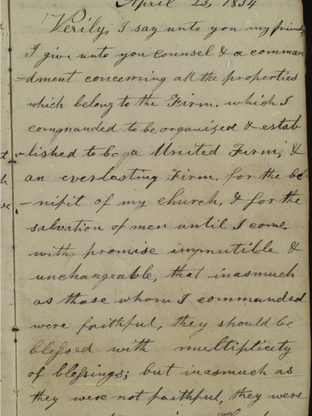 April 23, 1834
Verily, I say unto you my friends
I give unto you counsel & a comman
-dment concerning all the properties
which belong to the Firm, which I
commanded to be organized & estab
-lished to be a United Firm, &
an everlasting Firm, for the be
-nifit of my church, & for the
salvation of men until I come,
with promise immutible &
unchangeable, that inasmuch
as those whom I commanded
were faithful, they should be
blessed with multiplicity
of blessings; but inasmuch as
they were not faithful, they were